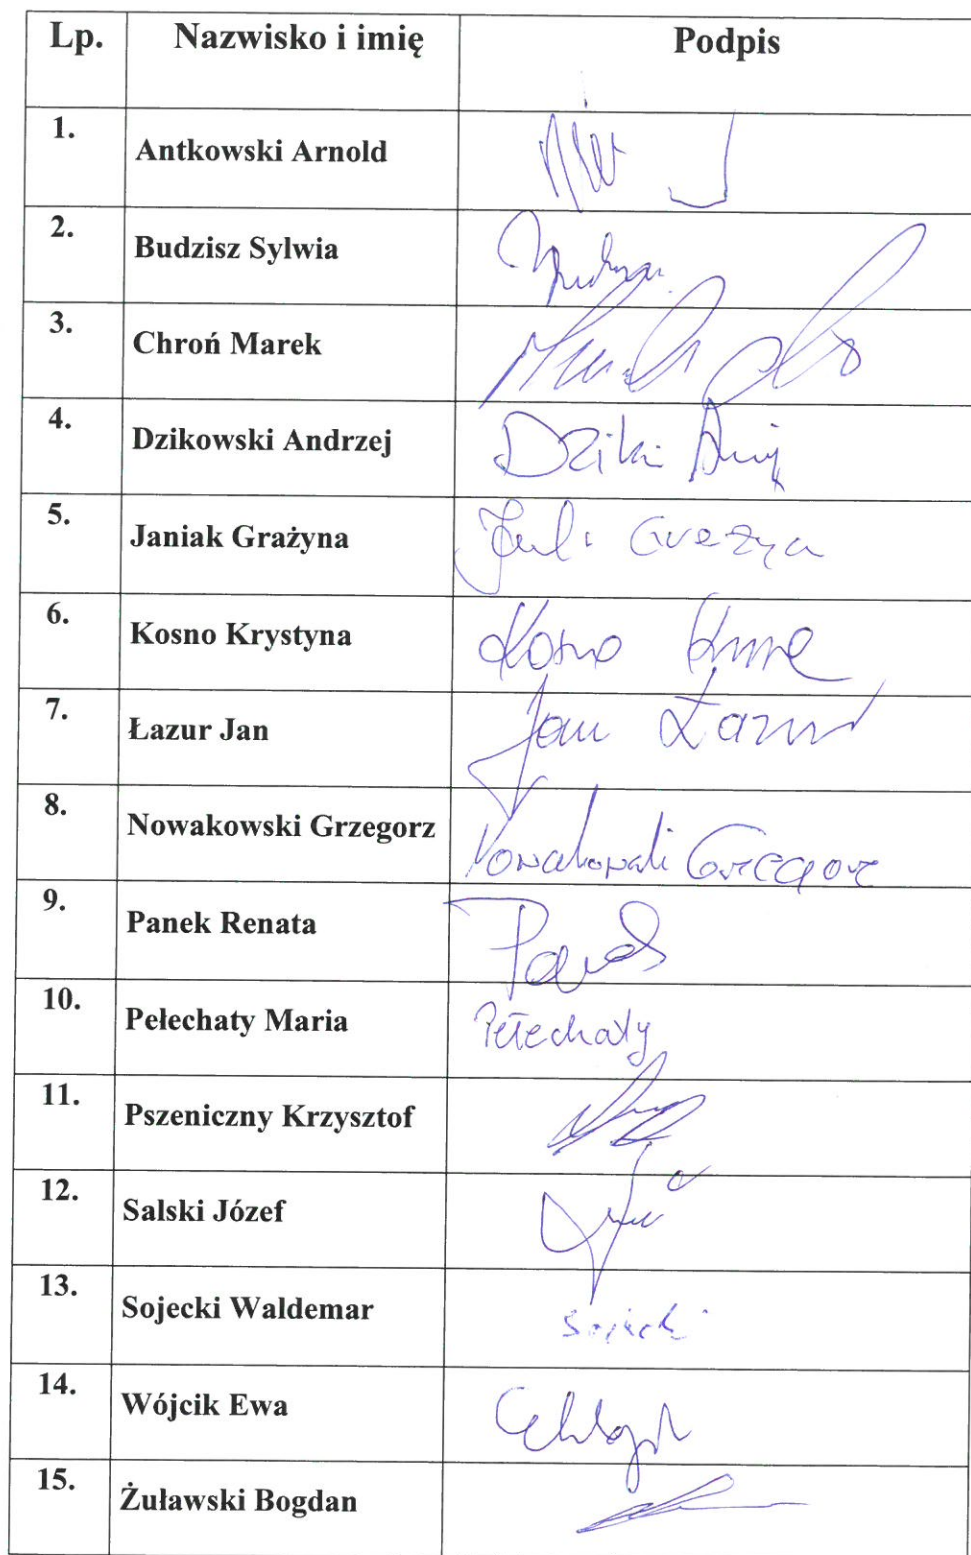 Lp. Nazwisko i imię Podpis
1. Antkowski Arnold
2. Budzisz Sylwia
3. Chroń Marek
4. Dzikowski Andrzej
5. Janiak Grażyna
6. Kosno Krystyna Kosno
7. Łazur Jan Jan Łazur
8. Nowakowski Grzegorz Nowakowski Grzegorz
9. Panek Renata
10. Pełechaty Maria Pełechaty
11. Pszeniczny Krzysztof
12. Salski Józef
13. Sojecki Waldemar Sojecki
14. Wójcik Ewa
15. Żuławski Bogdan